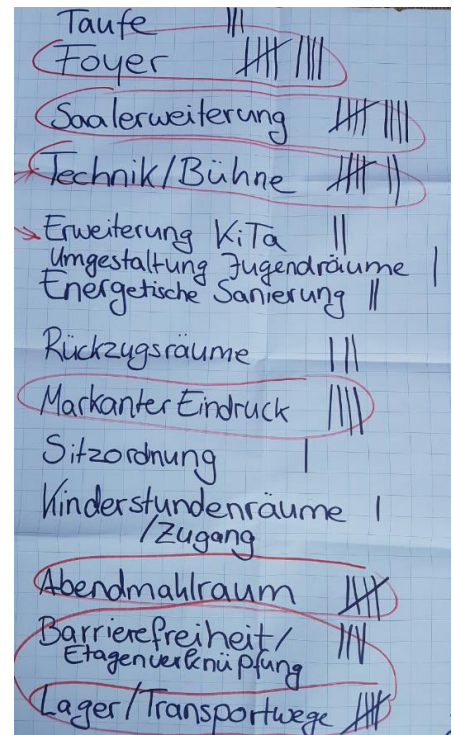 Taufe |||
Foyer 卌 ||||
Saalerweiterung 卌 ||||
Technik/Bühne 卌 ||
Erweiterung KiTa ||
Umgestaltung Jugendräume |
Energetische Sanierung ||
Rückzugsräume |||
Markanter Eindruck ||||
Sitzordnung |
Kinderstundenräume |
/Zugang
Abendmahlraum 卌
Barrierefreiheit/ ||||
Etagenverknüpfung
Lager/Transportwege 卌